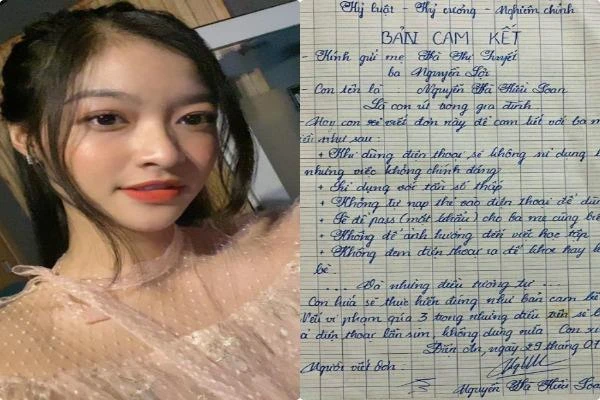 Kỷ luật - Kỷ cương - Nghiêm chỉnh
BẢN CAM KẾT
- Kính gửi mẹ Hà Thị Tuyết
ba Nguyễn Lộc
- Con tên là : Nguyễn Hà Hiếu Toan
Là con út trong gia đình.
- Nay con viết đơn này để cam kết với ba m
như sau:
+ Khi dùng điện thoại sẽ không sử dụng
những việc không chính đáng.
+ Sử dụng với tần số thấp
+ Không tự nạp thẻ vào điện thoại để
+ Sẽ để pass (mật khẩu) cho ba mẹ cùng biết
+ Không để ảnh hưởng đến việc học tập
+ Không đem điện thoại ra để khoe hay
bè.
... Và những điều tương tự ...
Con hứa sẽ thực hiện đúng như bản cam kết
Nếu vi phạm quá 3 trong những điều trên sẽ
điện thoại lẫn sim, không dùng nữa. Con
Điện An, ngày 29 tháng 01
Người viết đơn:
Nguyễn Hà Hiếu Toan